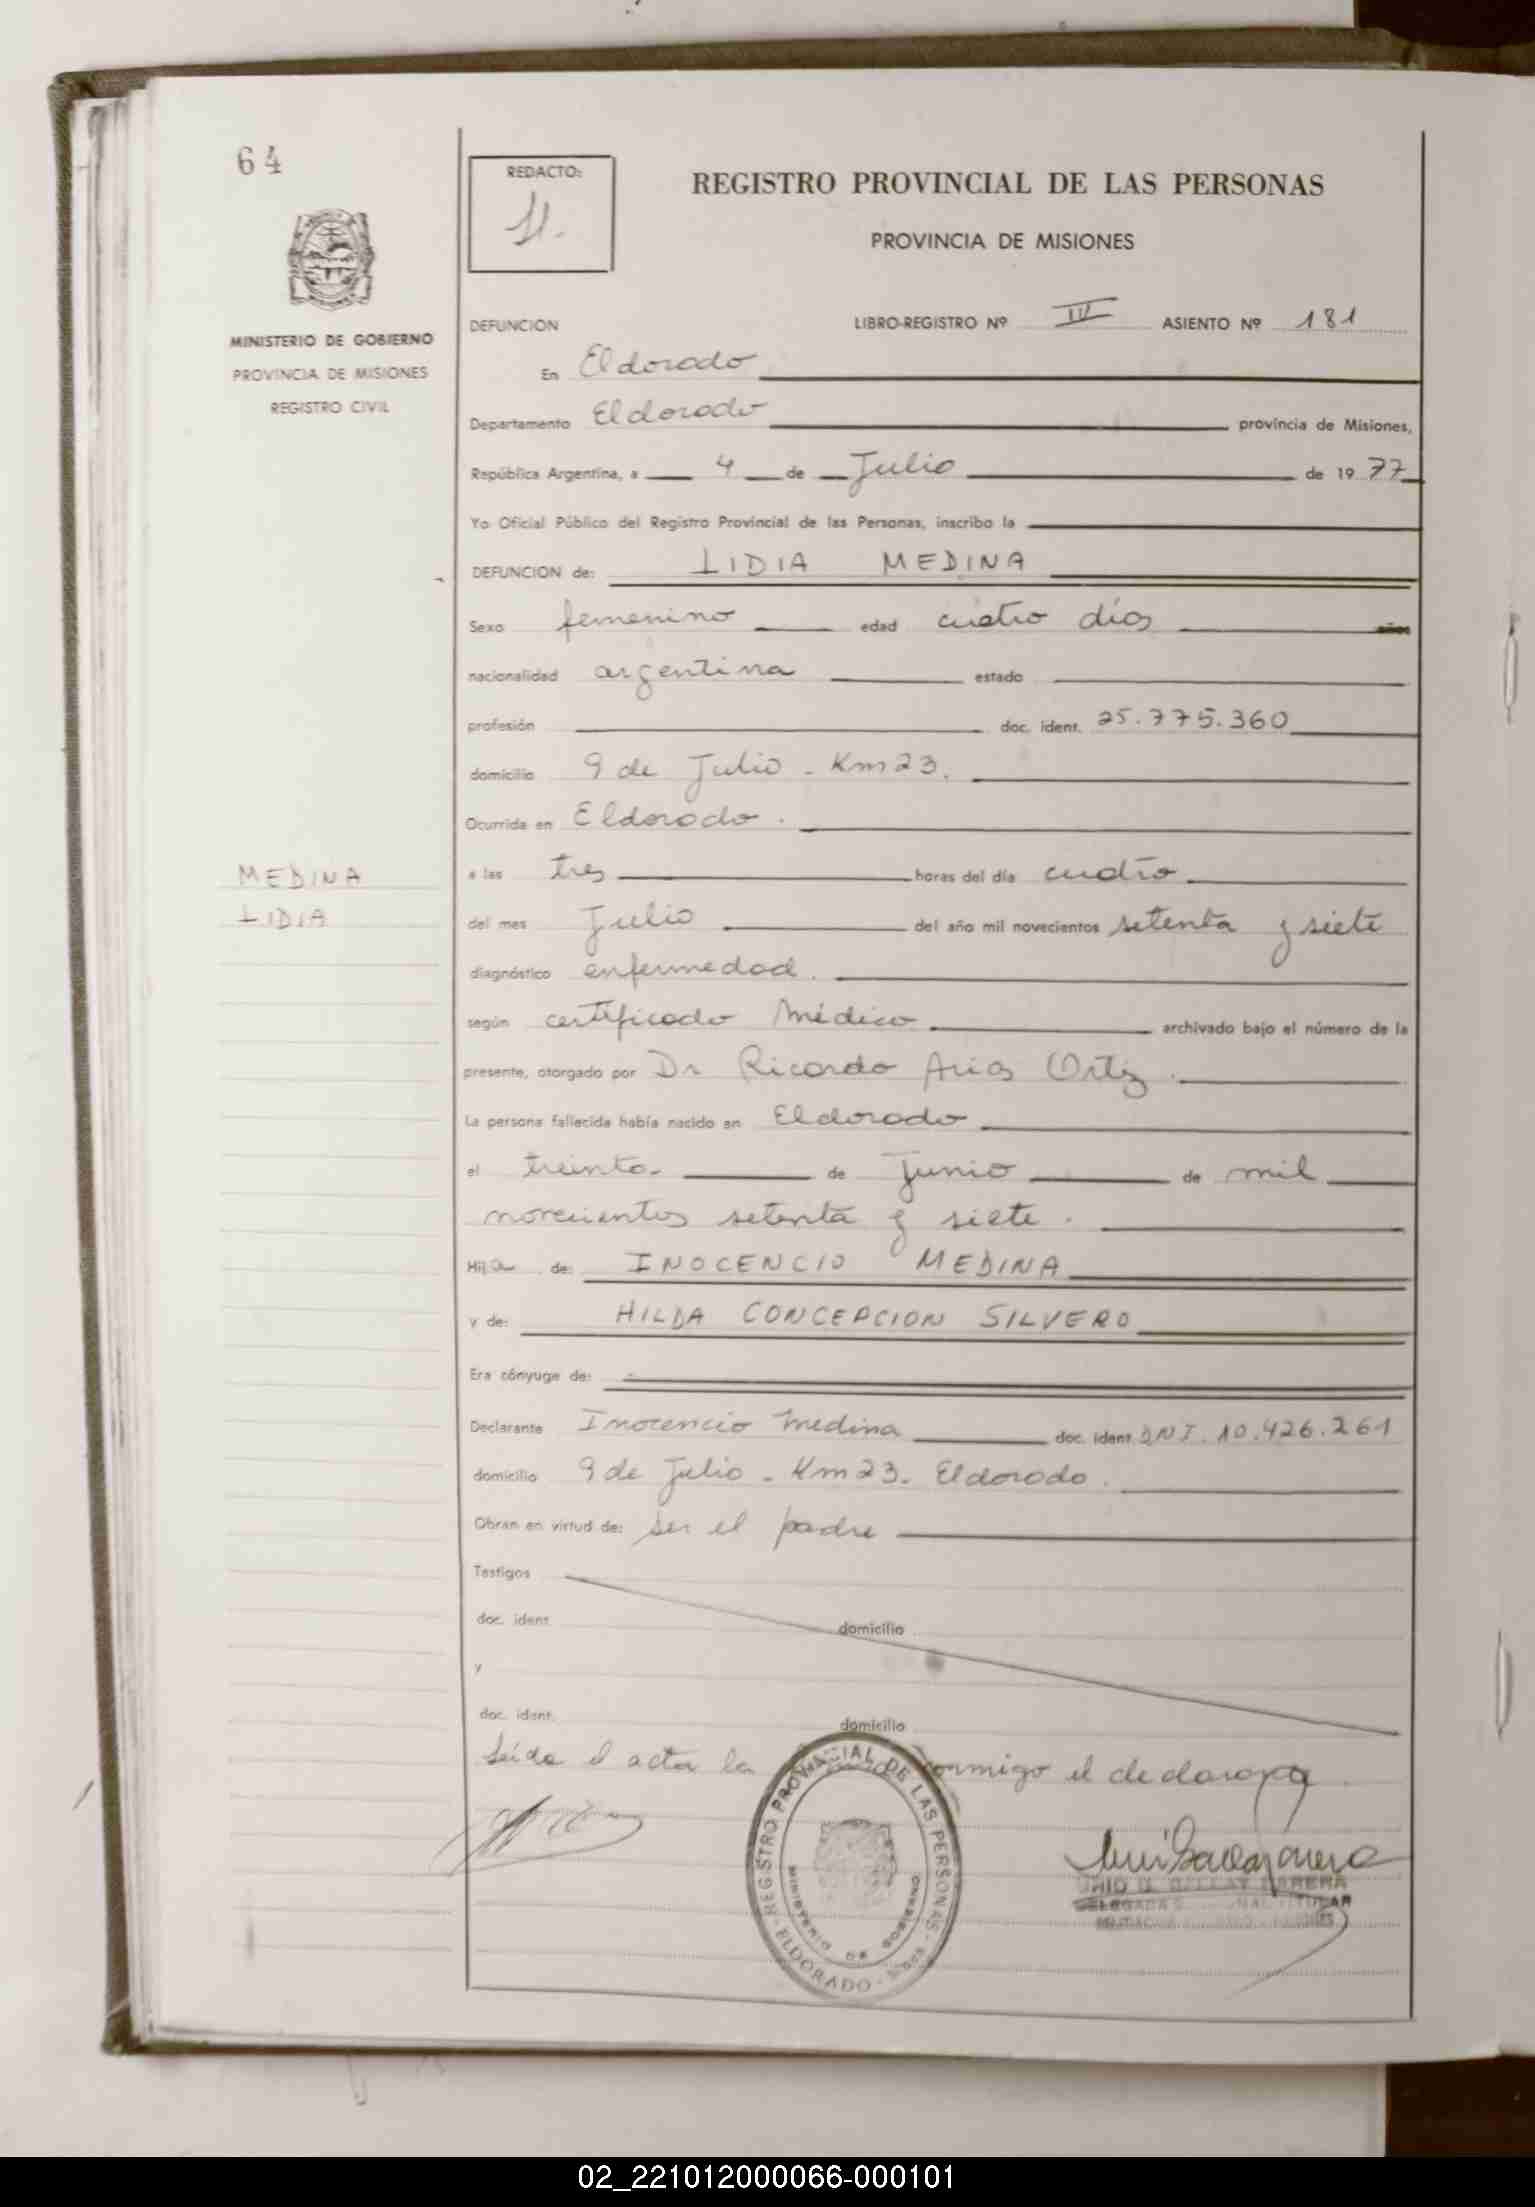 64
REDACTO:
REGISTRO PROVINCIAL DE LAS PERSONAS
PROVINCIA DE MISIONES
MINISTERIO DE GOBIERNO
PROVINCIA DE MISIONES
REGISTRO CIVIL
DEFUNCION LIBRO-REGISTRO Nº III ASIENTO Nº 181
En Eldorado
Departamento Eldorado provincia de Misiones,
República Argentina, a 4 de Julio de 1977
Yo Oficial Público del Registro Provincial de las Personas, inscribo la
DEFUNCION de: LIDIA MEDINA
Sexo femenino edad cuatro días
nacionalidad argentina estado
profesión doc. ident. 25.775.360
domicilio 9 de Julio - Km 23.
Ocurrida en Eldorado.
MEDINA
LIDIA
a las tres horas del día cuatro
del mes Julio del año mil novecientos setenta y siete
diagnóstico enfermedad.
según certificado Médico archivado bajo el número de la
presente, otorgado por Dr Ricardo Arias Ortiz.
La persona fallecida había nacido en Eldorado
el treinta de Junio de mil
novecientos setenta y siete.
Hija de: INOCENCIO MEDINA
y de: HILDA CONCEPCION SILVERO
Era cónyuge de:
Declarante Inocencio Medina doc. ident. DNI. 10.426.261
domicilio 9 de Julio - Km 23. Eldorado.
Obran en virtud de: ser el padre
Testigos
doc. ident. domicilio
y
doc. ident. domicilio
Leída el acta la conmigo el declarante
REGISTRO PROVINCIAL DE LAS PERSONAS
MINISTERIO DE GOBIERNO
ELDORADO
02_221012000066-000101